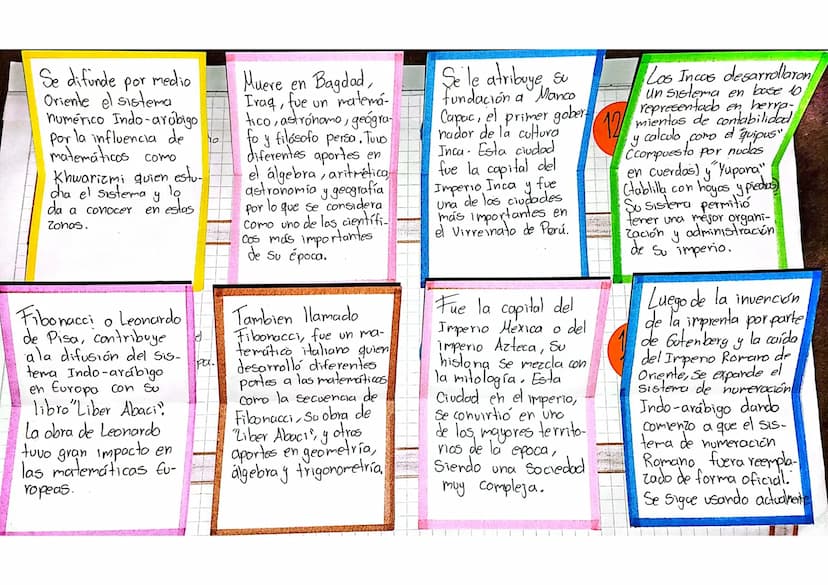 Se difunde por medio
Oriente el sistema
numérico Indo-arábigo
Por la influencia de
matemáticos como
Khwarizmi quien estu-
dia el sistema y lo
da a conocer en estas
zonas.
Muere en Bagdad,
Iraq, fue un matemá-
tico, astrónomo, geógra-
fo y filósofo persa. Tuvo
diferentes aportes en
el álgebra, aritmética,
astronomía y geografía
por lo que se considera
como uno de los científi-
cos más importantes
de su época.
Se le atribuye su
fundación a Manco
Capac, el primer gober-
nador de la cultura
Inca. Esta ciudad
fue la capital del
Imperio Inca y fue
una de las ciudades
más importantes en
el Virreinato de Perú.
12
Los Incas desarrollaron
un sistema en base 10
representado en herra-
mientas de contabilidad
y calculo, como el "quipus"
(compuesto por nudos
en cuerdas) y "Yupana"
(tablilla con hoyos y piedras)
Su sistema permitió
tener una mejor organi-
zación y administración
de su imperio.
Fibonacci o Leonardo
de Pisa, contribuye
a la difusión del Sis-
tema Indo-arábigo
en Europa con su
libro "Liber Abaci".
La obra de Leonardo
tuvo gran impacto en
las matemáticas Eu-
ropeas.
Tambien llamado
Fibonacci, fue un ma-
temático italiano quien
desarrolló diferentes
portes a las matemáticas
como la secuencia de
Fibonacci, su obra de
"Liber Abaci", y otros
aportes en geometría,
álgebra y trigonometría.
Fue la capital del
Imperio Mexica o del
imperio Azteca, su
historia se mezcla con
la mitología. Esta
Ciudad en el imperio,
se convirtió en uno
de los mayores territo-
rios de la epoca,
siendo una Sociedad
muy compleja.
Luego de la invención
de la imprenta por parte
de Gutenberg y la caída
del Imperio Romano de
Oriente, se expande el
Sistema de numeración
Indo-arábigo dando
comienzo a que el sis-
tema de numeración
Romano fuera reempla-
zado de forma oficial.
Se sigue usando actualmente